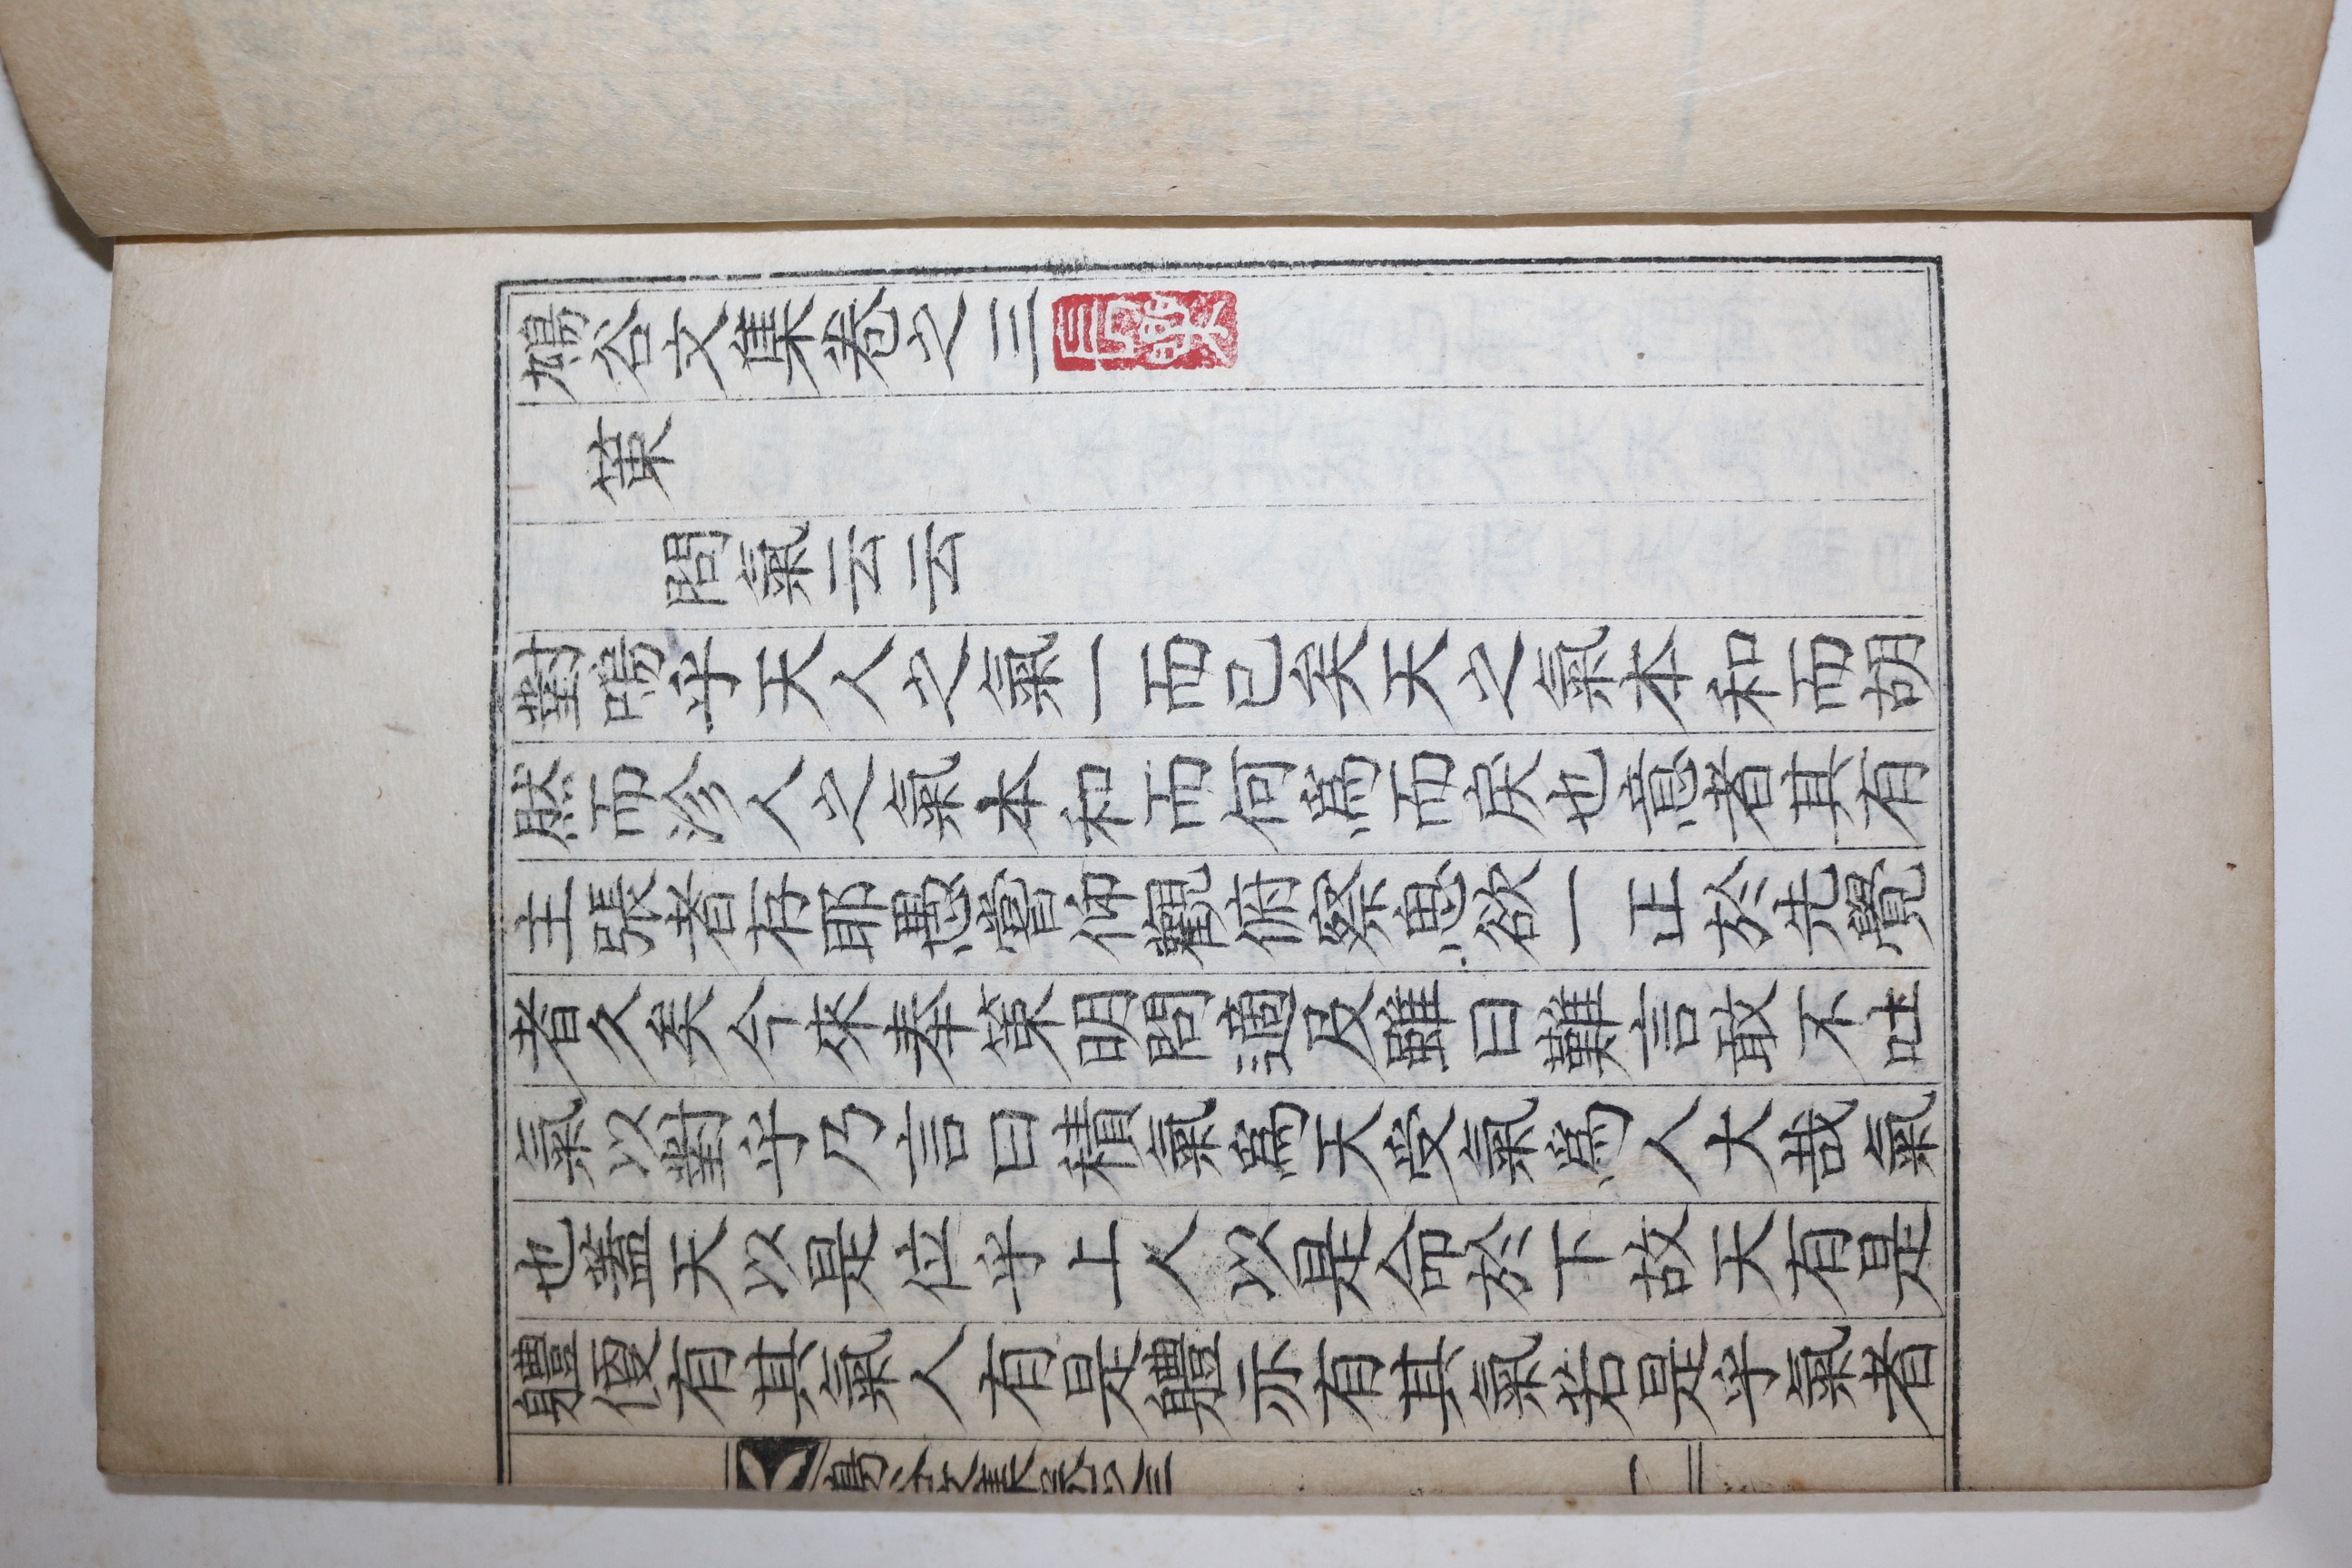 鳩谷文集卷之三
策
問氣云云
對嗚乎天人之氣一而已矣天之氣本和而胡
然而沴人之氣本和而何爲而戾也意者其有
主張者存耶愚嘗仰觀俯察恖欲一正於先覺
者久矣今來奉策明問適及雖曰難言敢不吐
氣以對乎乃言曰積氣爲天受氣爲人大哉氣
也蓋天以是位乎上人以是命於下故天有是
軆便有其氣人有是軆亦有其氣若是乎氣者
鳩谷文集卷之三
一